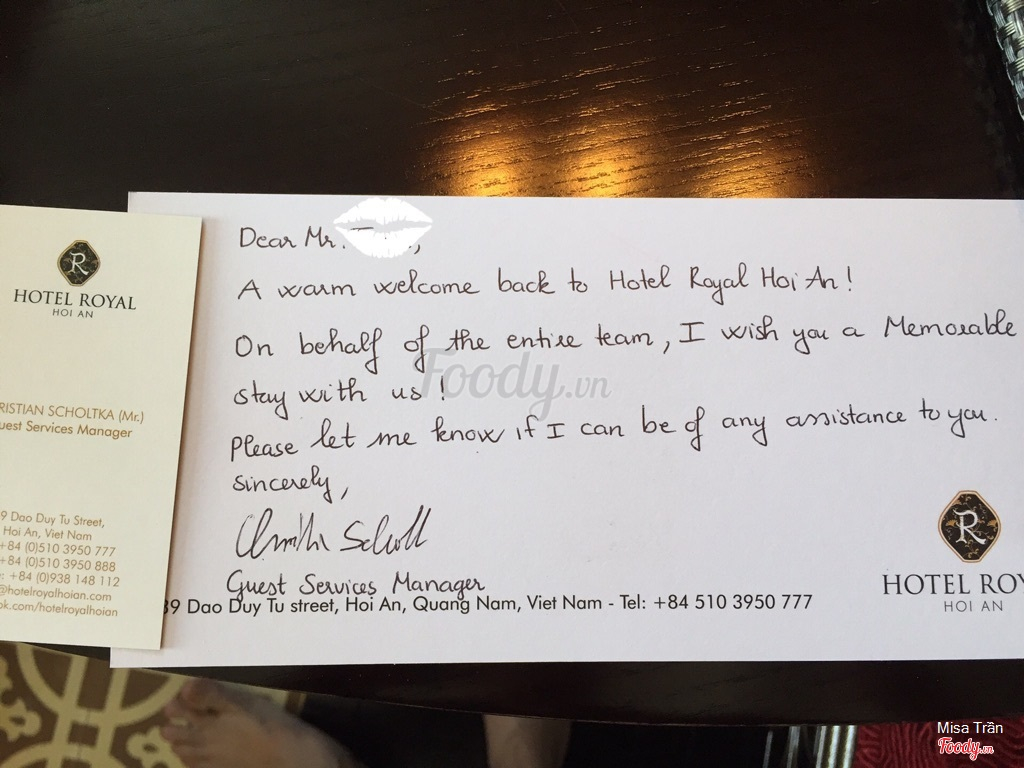 Dear Mr.
A warm welcome back to Hotel Royal Hoi An!
On behalf of the entire team, I wish you a Memorable
stay with us!
Please let me know if I can be of any assistance to you.
Sincerely,
Guest Services Manager
39 Dao Duy Tu street, Hoi An, Quang Nam, Viet Nam - Tel: +84 510 3950 777
R
HOTEL ROY
HOI AN
R
HOTEL ROYAL
HOI AN
RISTIAN SCHOLTKA (Mr.)
uest Services Manager
9 Dao Duy Tu Street,
Hoi An, Viet Nam
+84 (0)510 3950 777
+84 (0)510 3950 888
: +84 (0)938 148 112
@hotelroyalhoian.com
ok.com/hotelroyalhoian
Foody.vn
Misa Trần
Foody.vn